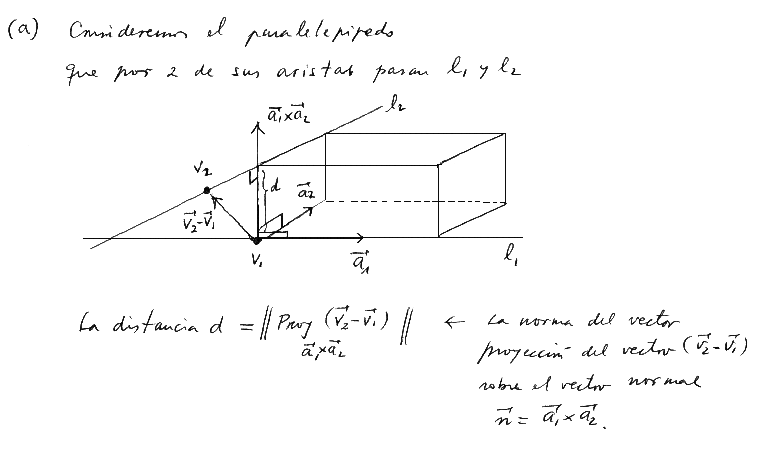 (a) Consideremos el paralelepípedo
que por 2 de sus aristas pasan l₁ y l₂
a⃗₁×a⃗₂
l₂
V₂
d
a⃗₂
v⃗₂-v⃗₁
V₁
a⃗₁
l₁
La distancia d = ‖ Proy (v⃗₂-v⃗₁) ‖ ← La norma del vector
a⃗₁×a⃗₂
proyección del vector (v⃗₂-v⃗₁)
sobre el vector normal
n⃗ = a⃗₁×a⃗₂.